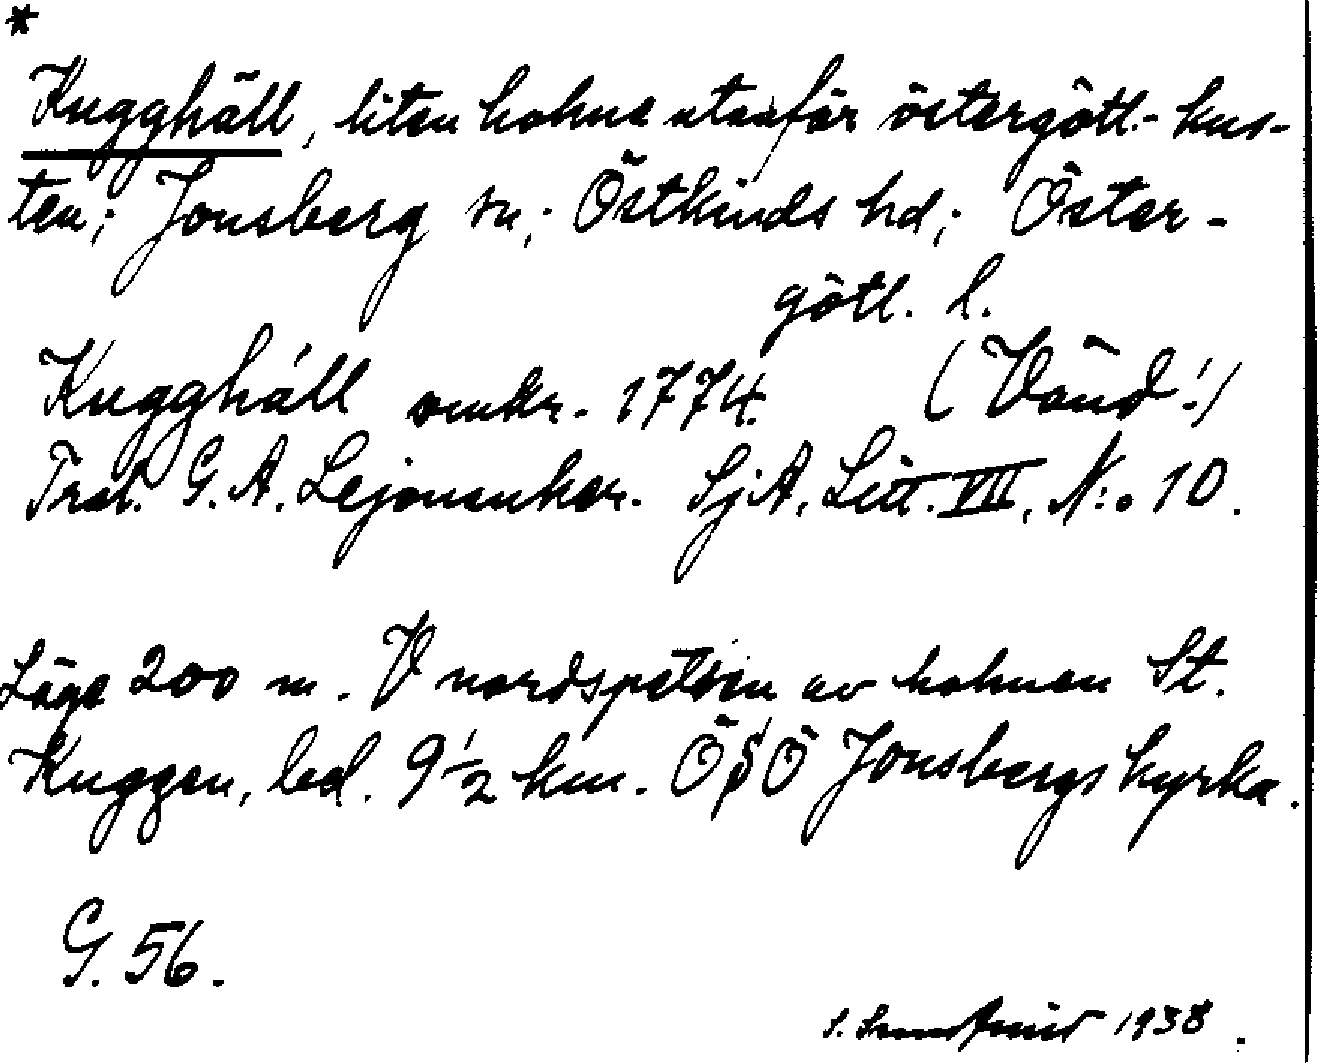 *
Kugghäll, liten holme utanför östergötl.- kus-
ten; Jonsberg sn; Östkinds hd; Öster-
götl. l.
Kugghäll omkr. 1774. (Vänd!)
Trol. G. A. Lejonanker. SjA. Litt. VII, N:o 10.
Läge 200 m. V nordspetsen av holmen St.
Kuggen, bel. 9 1/2 km. ÖSÖ Jonsbergs kyrka.
G. 56.
S. 1938.